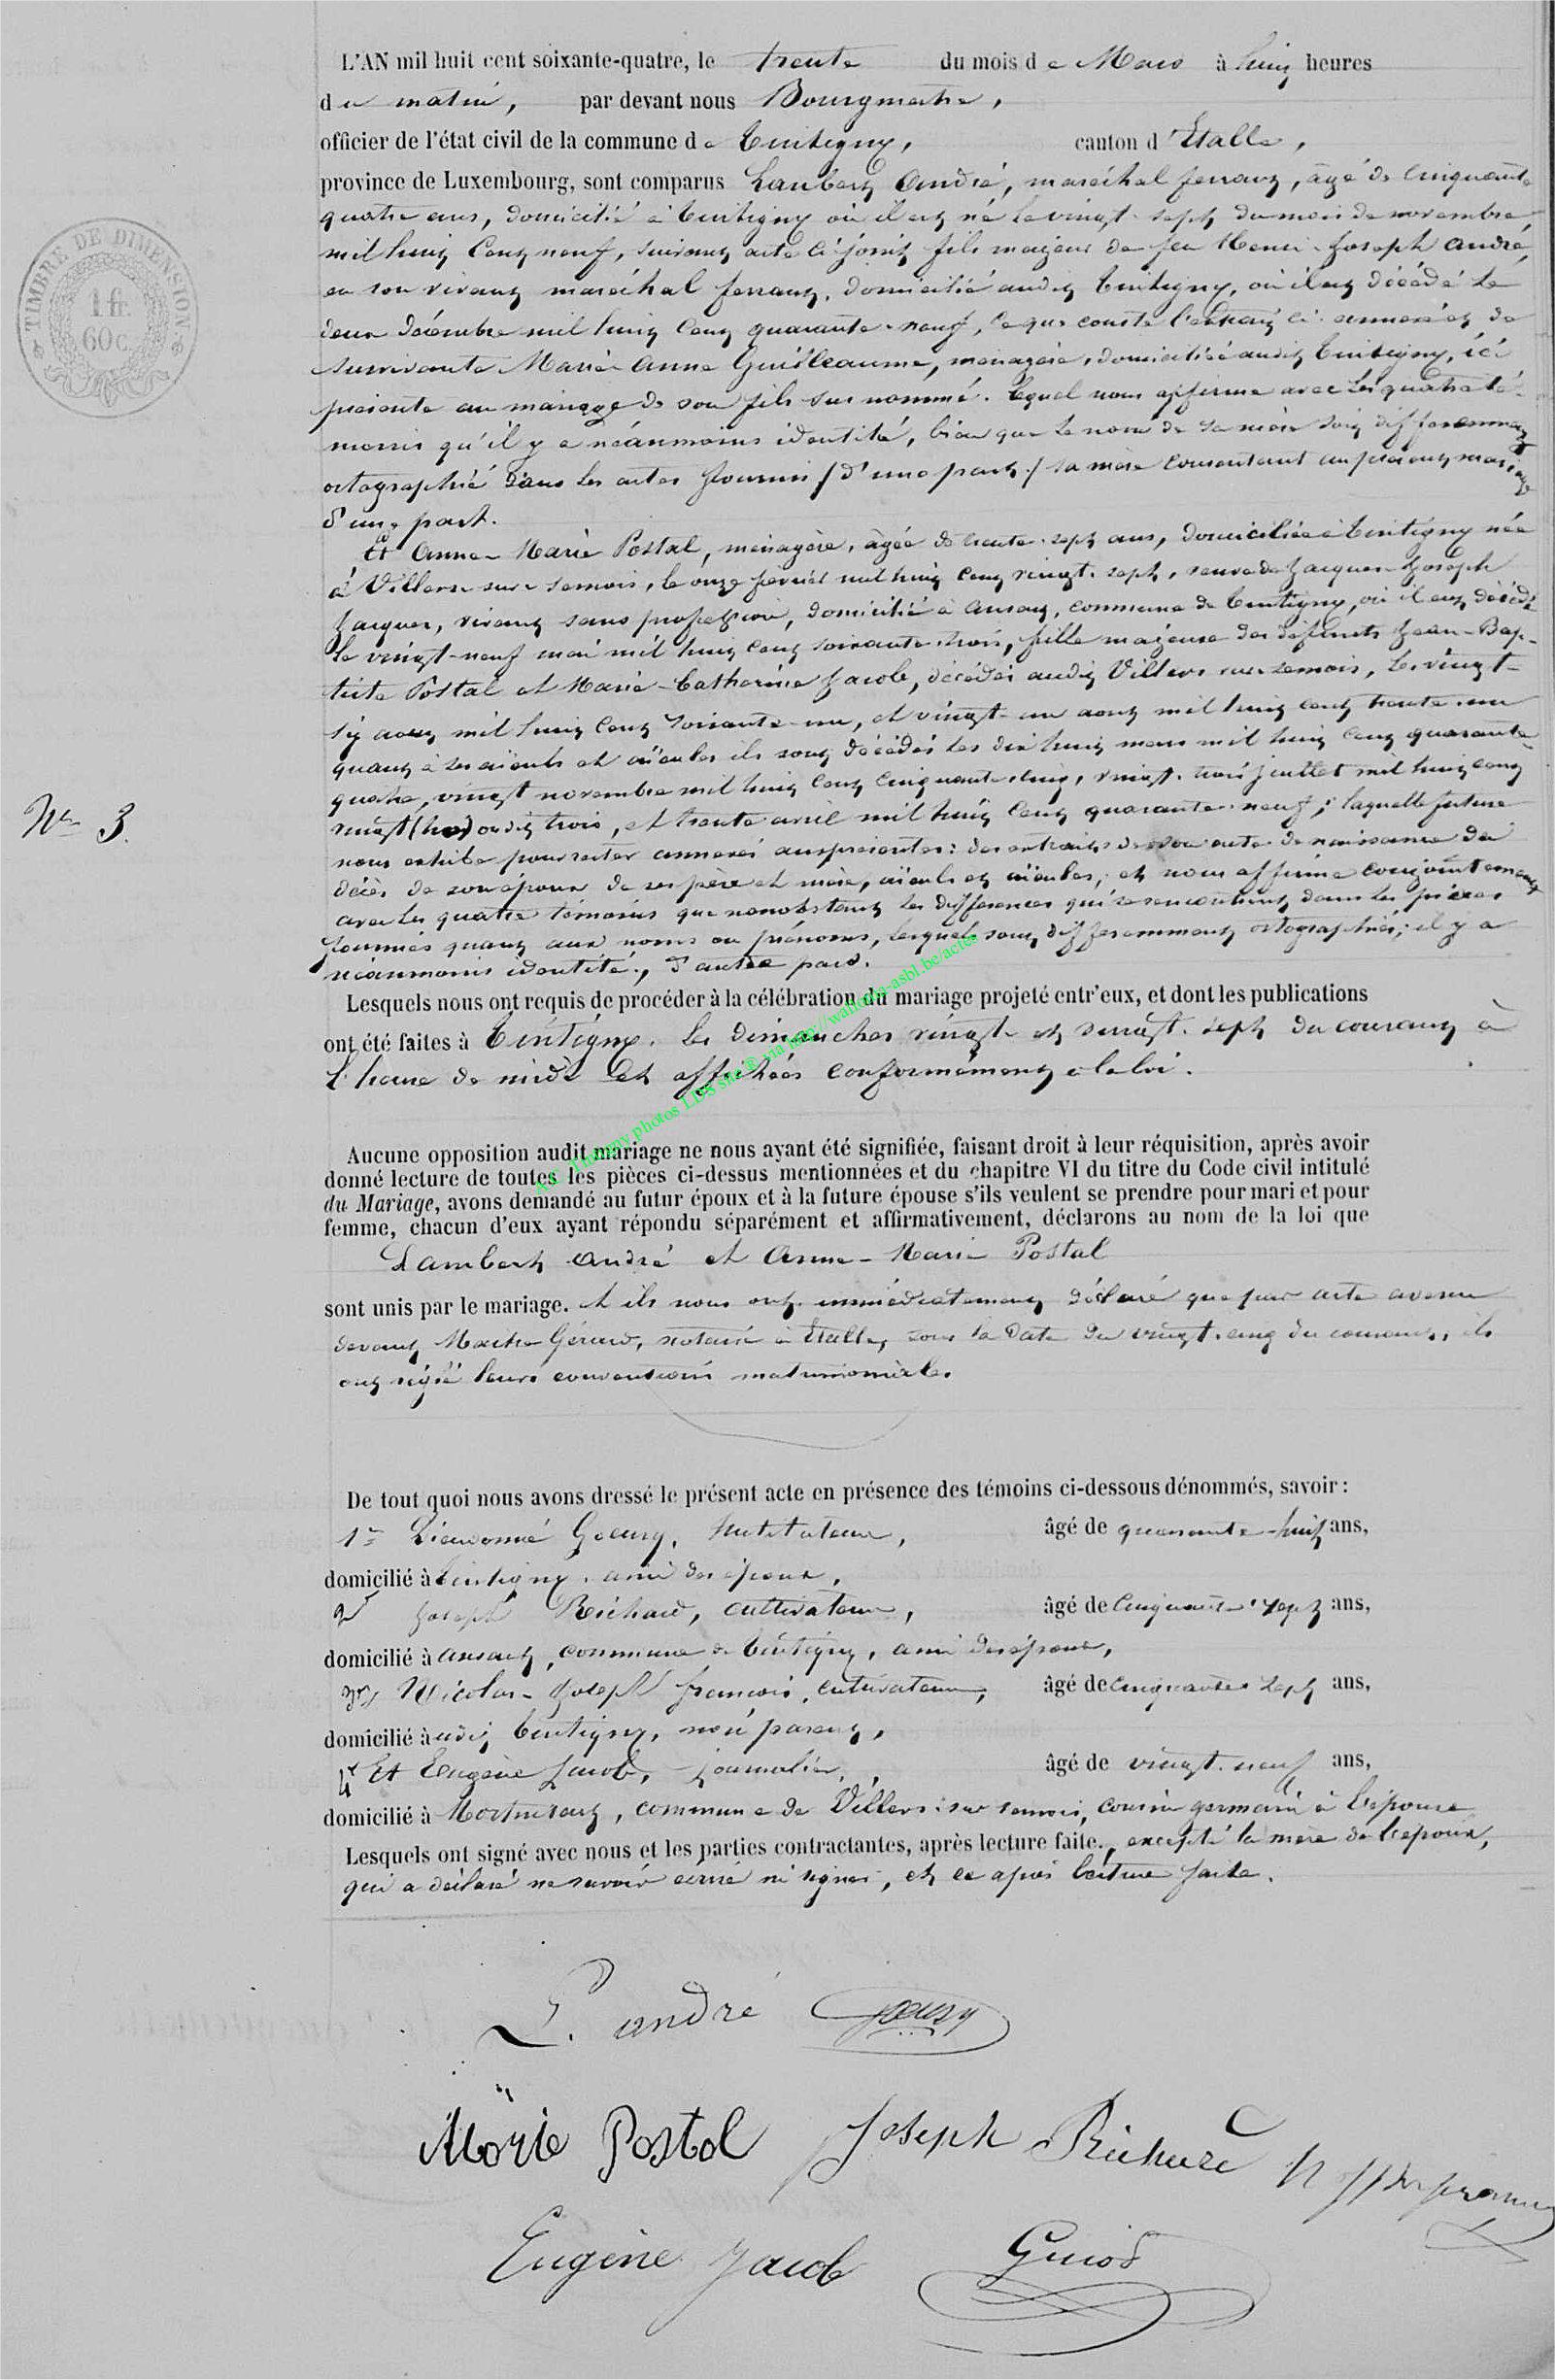 L'AN mil huit cent soixante-quatre, le trente du mois de Mars à huit heures
du matin, par devant nous Bourgmestre,
officier de l'état civil de la commune de Tintigny, canton d'Etalle,
province de Luxembourg, sont comparus Lambert André, maréchal ferrant, âgé de cinquante
quatre ans, domicilié à Tintigny où il est né le vingt-sept du mois de novembre
mil huit cent neuf, suivant acte ci-joint fils majeur de feu Henri-Joseph André,
en son vivant maréchal ferrant, domicilié audit Tintigny, où il est décédé le
deux décembre mil huit cent quarante-neuf, ce que conste l'extrait ci-annexé et de
survivante Marie-Anne Guilleaume, ménagère, domiciliée audit Tintigny, ici
présente au mariage de son fils sus nommé. Lequel nous affirme avec les quatre té-
moins qu'il y a néanmoins identité, bien que le nom de sa mère soit differemment
ortographié dans les actes fournis / d'une part / sa mère consentant au présent mariage
d'une part.
Et Anne-Marie Postal, ménagère, âgée de trente-sept ans, domiciliée à Tintigny née
à Villers-sur-Semois, le onze février mil huit cent vingt-sept, veuve de Jacques-Joseph
Jacques, vivant sans profession, domicilié à Ansart, commune de Tintigny, où il est décédé
le vingt-neuf mai mil huit cent soixante-trois, fille majeure des défunts Jean-Bap-
tiste Postal et Marie-Catherine Jacob, décédés audit Villers sur Semois, les vingt-
six août mil huit cent soixante-un, et vingt-un août mil huit cent trente-un
quant à ses aïeuls et aïeules ils sont décédés les dix huit mars mil huit cent quarante-
quatre, vingt novembre mil huit cent cinquante-cinq, vingt-trois juillet mil huit cent
vingt trois, et trente avril mil huit cent quarante-neuf; laquelle future
nous exhibe pour rester annexés aux présentes: des extraits de son acte de naissance de
décès de son époux de ses père et mère, aïeuls et aïeules; et nous affirme conjointement
avec les quatre témoins que nonobstant les differences qui se rencontrent dans les pièces
fournies quant aux noms ou prénoms, lesquels sont differemment ortographiés; il y a
néanmoins identité, d'autre part.
Lesquels nous ont requis de procéder à la célébration du mariage projeté entr'eux, et dont les publications
ont été faites à Tintigny. les dimanches vingt et vingt-sept du courant à
l'heure de midi et affichées conformément à la loi.
Aucune opposition audit mariage ne nous ayant été signifiée, faisant droit à leur réquisition, après avoir
donné lecture de toutes les pièces ci-dessus mentionnées et du chapitre VI du titre du Code civil intitulé
du Mariage, avons demandé au futur époux et à la future épouse s'ils veulent se prendre pour mari et pour
femme, chacun d'eux ayant répondu séparément et affirmativement, déclarons au nom de la loi que
Lambert André et Anne-Marie Postal
sont unis par le mariage. et ils nous ont immédiatement déclaré que par acte avenu
devant Maitre Gérard, notaire à Etalle, sous la date du vingt-cinq du courant, ils
ont réglé leurs conventions matrimoniales.
De tout quoi nous avons dressé le présent acte en présence des témoins ci-dessous dénommés, savoir:
1° Dieudonné Goeury, Instituteur, âgé de quarante-huit ans,
domicilié à Tintigny, ami des époux,
2° Joseph Richard, cultivateur, âgé de cinquante-sept ans,
domicilié à Ansart, commune de Tintigny, ami des époux,
3° Nicolas-Joseph François, cultivateur, âgé de cinquante-sept ans,
domicilié audit Tintigny, non parent,
4° Et Eugène Jacob, journalier, âgé de vingt-neuf ans,
domicilié à Mortinsart, commune de Villers-sur-Semois, cousin germain à l'épouse
Lesquels ont signé avec nous et les parties contractantes, après lecture faite, excepté la mère de l'époux,
qui a déclaré ne savoir écrire ni signer, et ce après lecture faite.
N° 3.
TIMBRE DE DIMENSION
1 fr.
60 c.
L. andré Goeury
Marie Postal Joseph Richard
Eugène Jacob Guiod
A.E. Tintigny photos LDS site @ via http://wallonia-asbl.be/actes